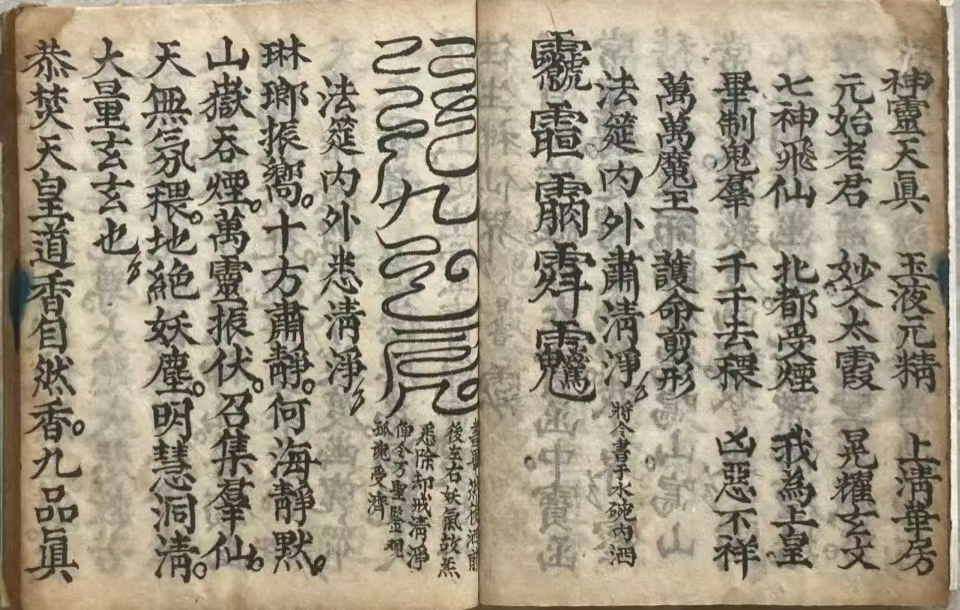 神靈天眞　玉液元精　上清華房
元始老君　妙入太霞　晃耀玄文
七神飛仙　北都受煙　我為上皇
畢制鬼羣　千千去穢　凶惡不祥
萬萬魔王　護命剪形
法筵內外肅清淨　將令書于水碗內洒
後左右妖氣故炁
悉除却戒清淨
俾令万聖監観
孤魂受濟
法筵內外悉清淨
琳瑯振嚮。十方肅靜。何海靜默。
山嶽吞煙。萬靈振伏。召集羣仙。
天無氛穢。地絕妖塵。明慧洞清。
大量玄玄也
恭焚天皇道香自然香。九品眞